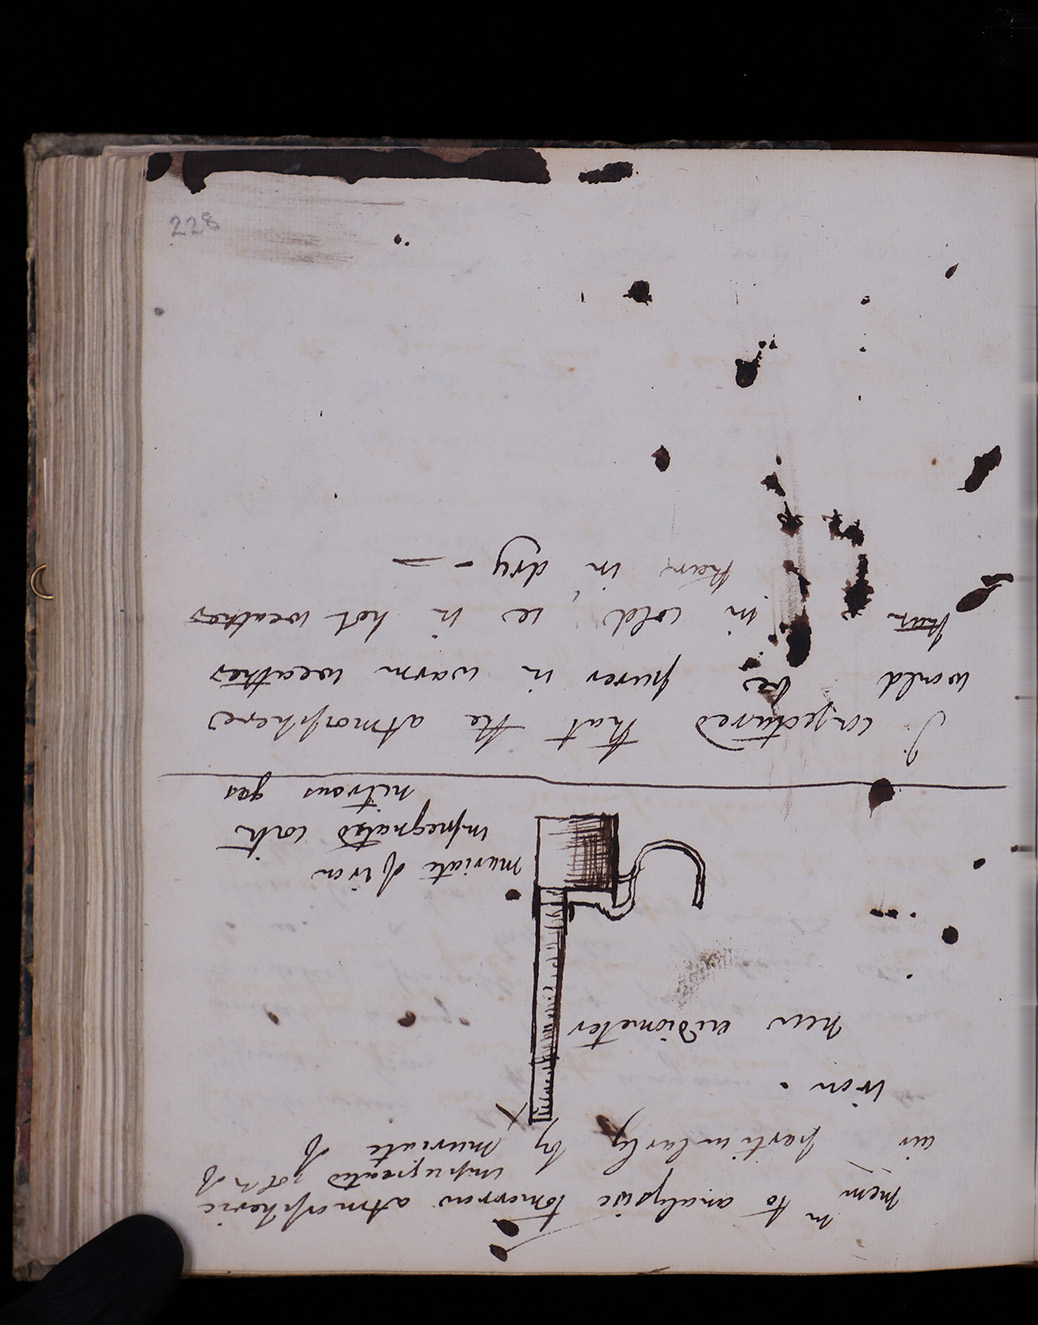 mem to analysize tomorrow atmospheric
impregnated soln of
air particularly by muriate of
iron.
new eudiometer
muriate of iron
impregnated with
nitrous gas
I conjectured that the atmosphere
would be purer in warm weather
than in cold, ie in hot weather
than in dry –
228